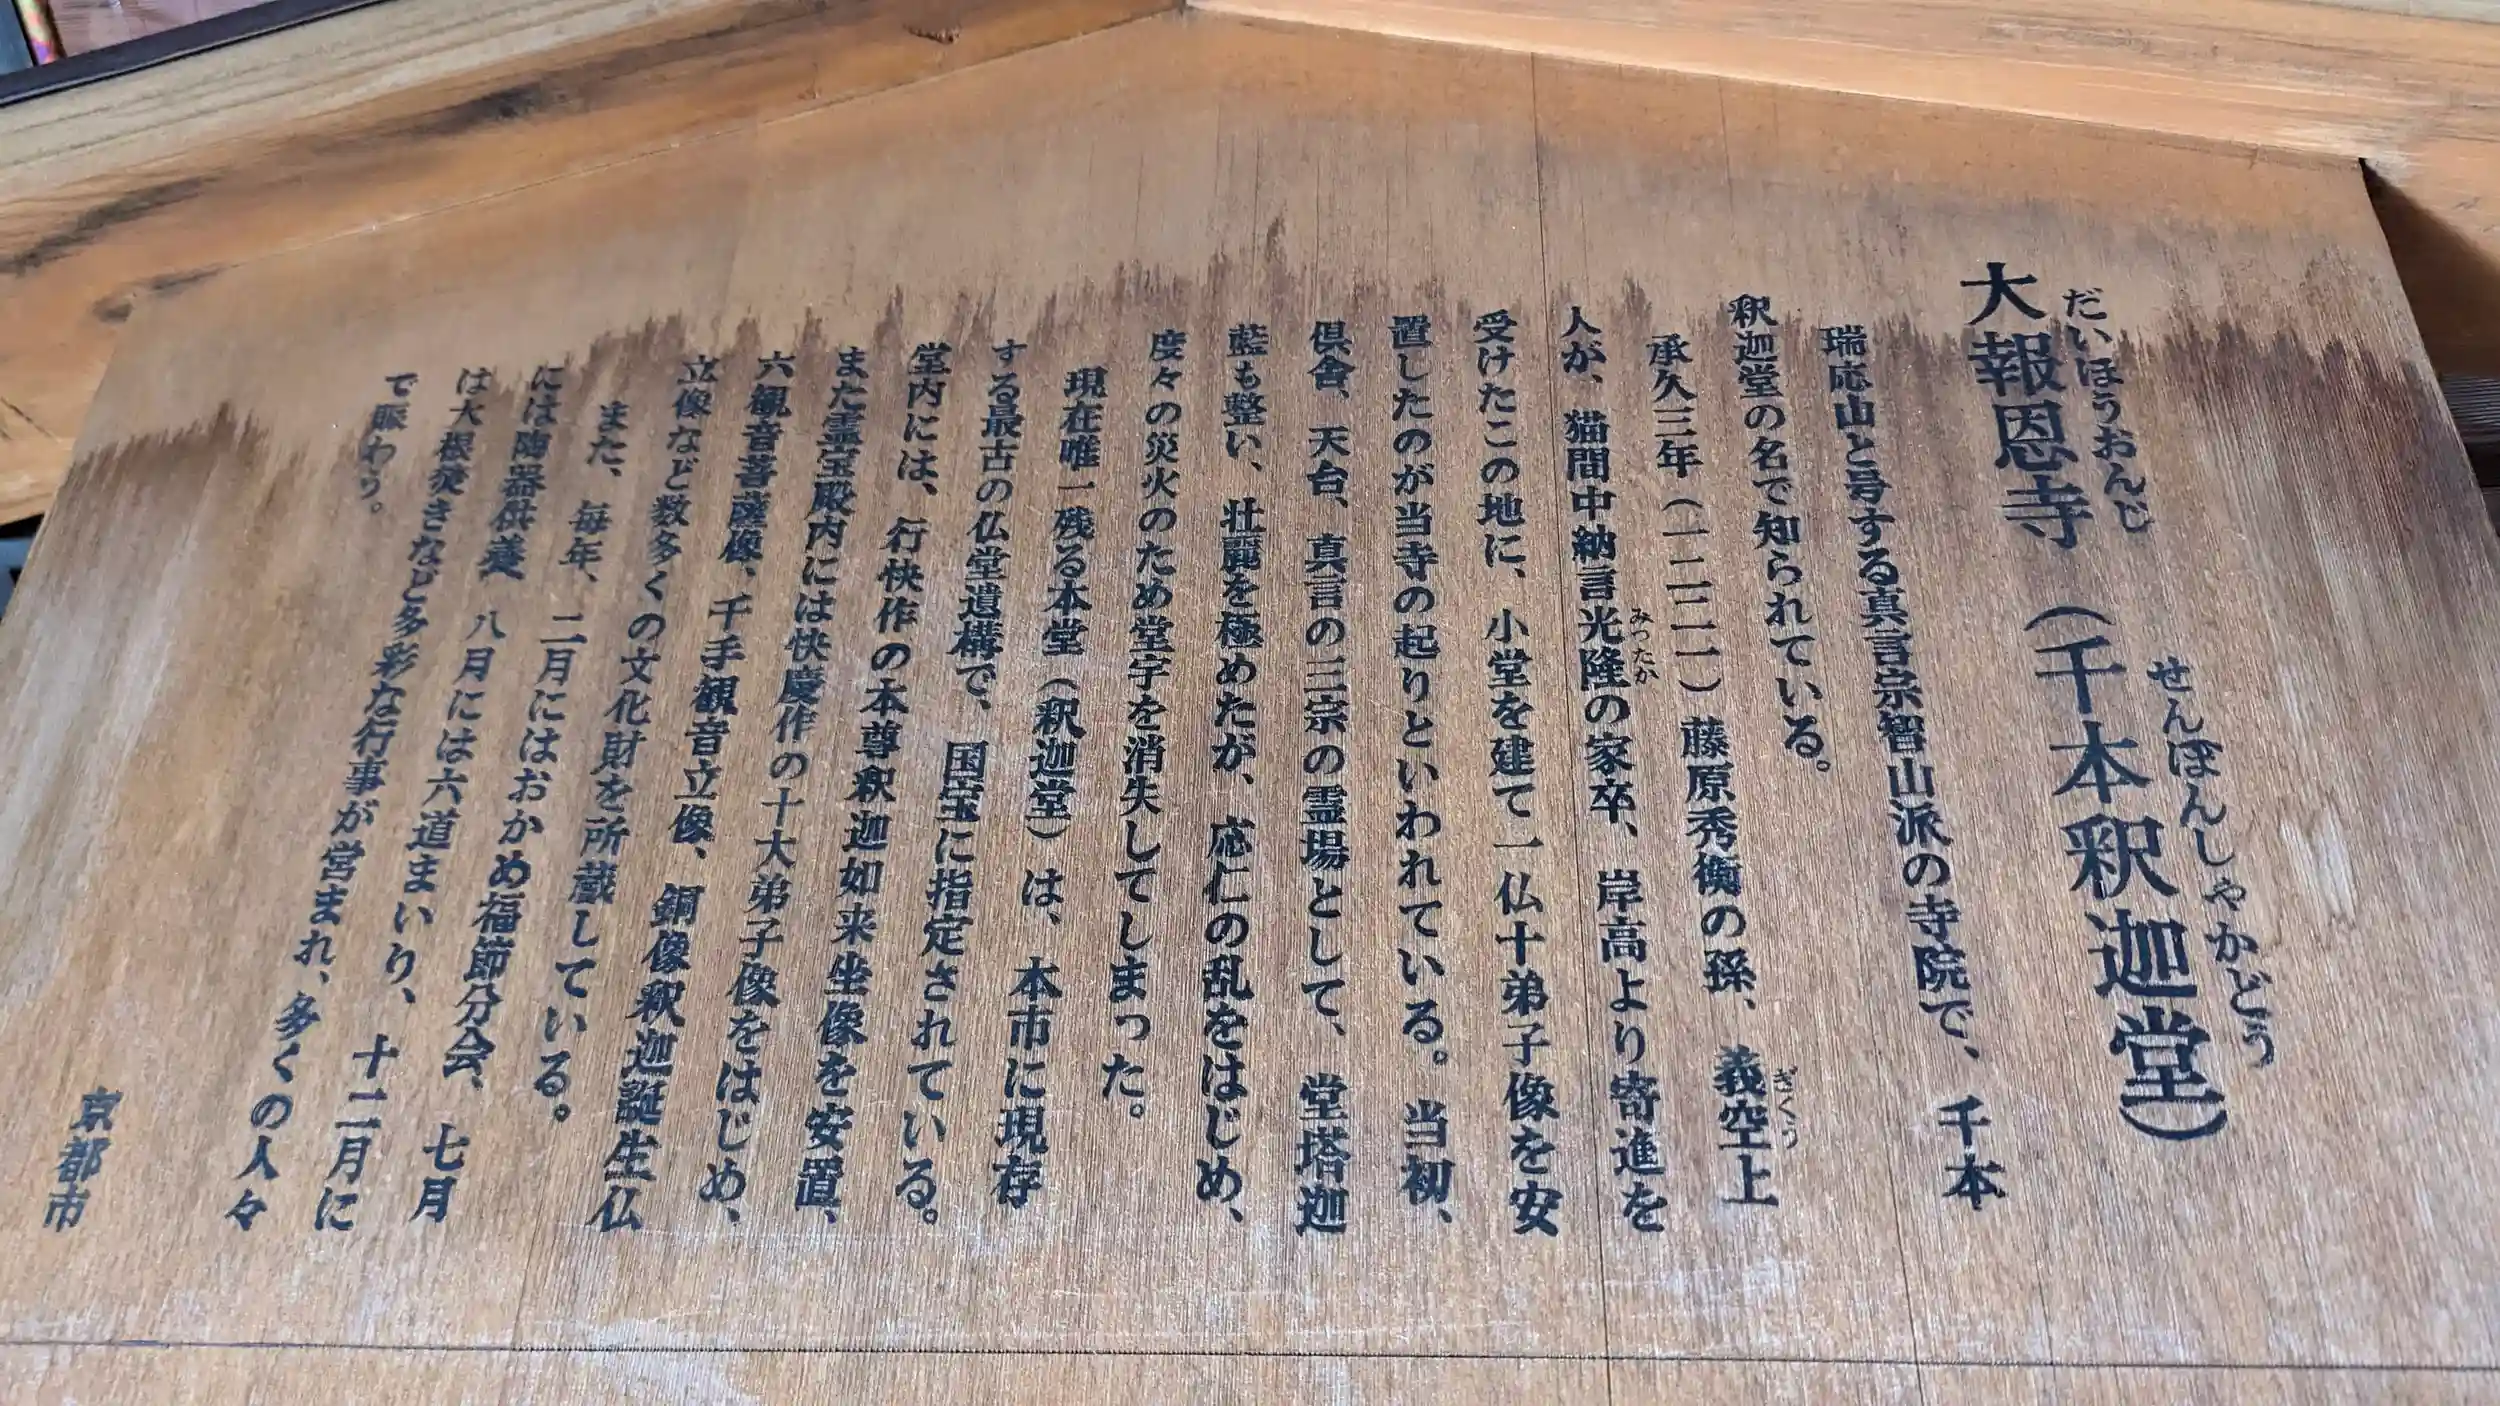 大報恩寺（千本釈迦堂）
だいほうおんじ せんぼんしゃかどう
瑞応山と号する真言宗智山派の寺院で、千本
釈迦堂の名で知られている。
承久三年（一二二一）藤原秀衡の孫、義空上
ぎくう
人が、猫間中納言光隆の家卒、岸高より寄進を
みつたか
受けたこの地に、小堂を建て一仏十弟子像を安
置したのが当寺の起りといわれている。当初、
倶舎、天台、真言の三宗の霊場として、堂塔迦
藍も整い、壮麗を極めたが、応仁の乱をはじめ、
度々の災火のため堂宇を消失してしまった。
現在唯一残る本堂（釈迦堂）は、本市に現存
する最古の仏堂遺構で、国宝に指定されている。
堂内には、行快作の本尊釈迦如来坐像を安置、
また霊宝殿内には快慶作の十大弟子像をはじめ、
六観音菩薩像、千手観音立像、銅像釈迦誕生仏
立像など数多くの文化財を所蔵している。
また、毎年、二月にはおかめ福節分会、七月
には陶器供養、八月には六道まいり、十二月に
は大根焚きなど多彩な行事が営まれ、多くの人々
で賑わう。
京都市